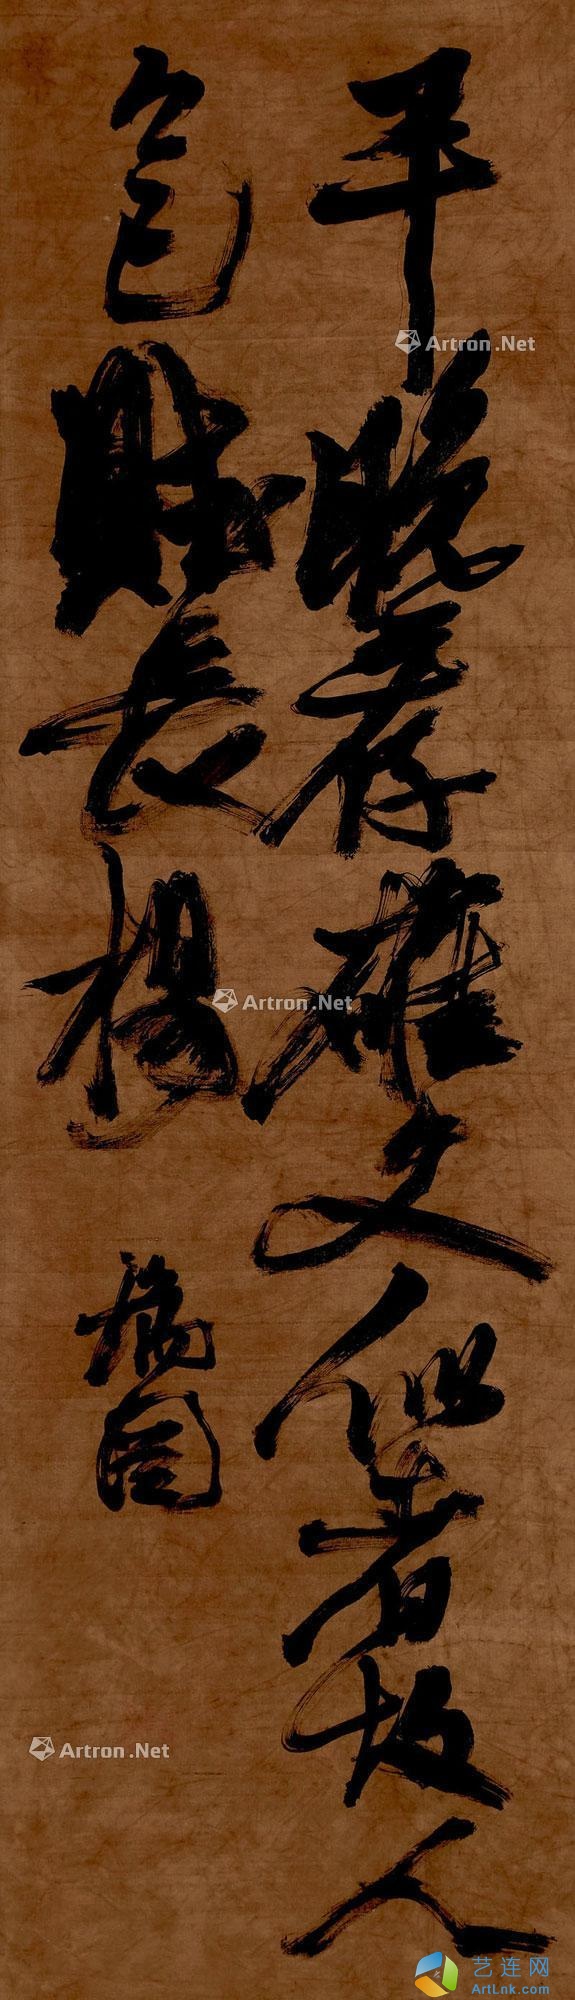 早晚荐雄文似者故人
今已賦長楊
瑞图
Artron.Net
Artron.Net
Artron.Net
艺连网
ArtLnk.com